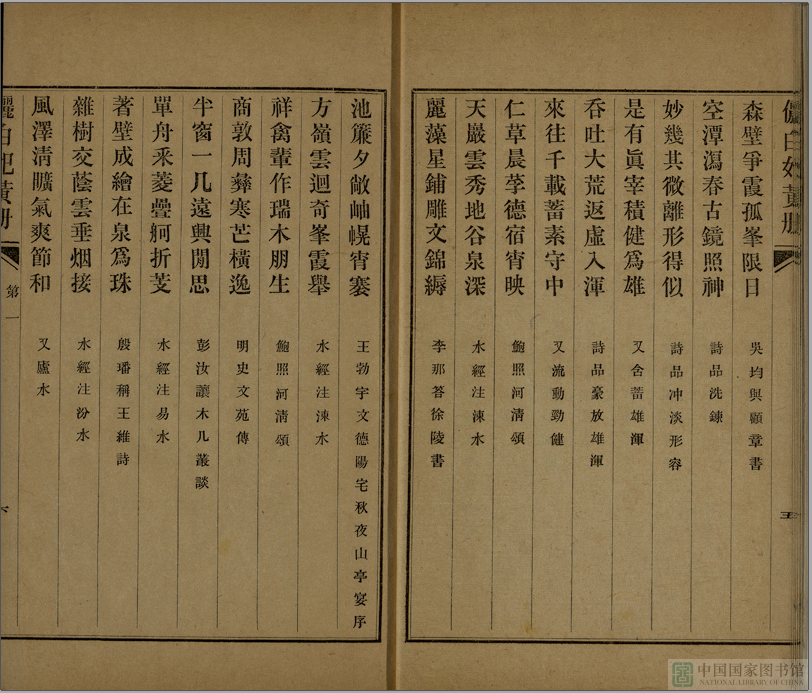 儷白妃黃册
五
森壁爭霞孤峯限日 吳均與顧章書
空潭瀉春古鏡照神 詩品洗鍊
妙幾其微離形得似 詩品冲淡形容
是有眞宰積健爲雄 又含蓄雄渾
吞吐大荒返虛入渾 詩品豪放雄渾
來往千載蓄素守中 又流動勁健
仁草晨莩德宿宵映 鮑照河清頌
天巖雲秀地谷泉深 水經注涑水
麗藻星鋪雕文錦縟 李那答徐陵書
池簾夕敞岫幌宵褰 王勃宇文德陽宅秋夜山亭宴序
方嶺雲迴奇峯霞舉 水經注涑水
祥禽輩作瑞木朋生 鮑照河清頌
商敦周彝寒芒橫逸 明史文苑傳
半窗一几遠興閒思 彭汝讓木几叢談
單舟采菱疊舸折芰 水經注易水
著壁成繪在泉爲珠 殷璠稱王維詩
雜樹交蔭雲垂烟接 水經注汾水
風澤清曠氣爽節和 又廬水
儷白妃黃册 第一
中国国家图书馆
NATIONAL LIBRARY OF CHINA